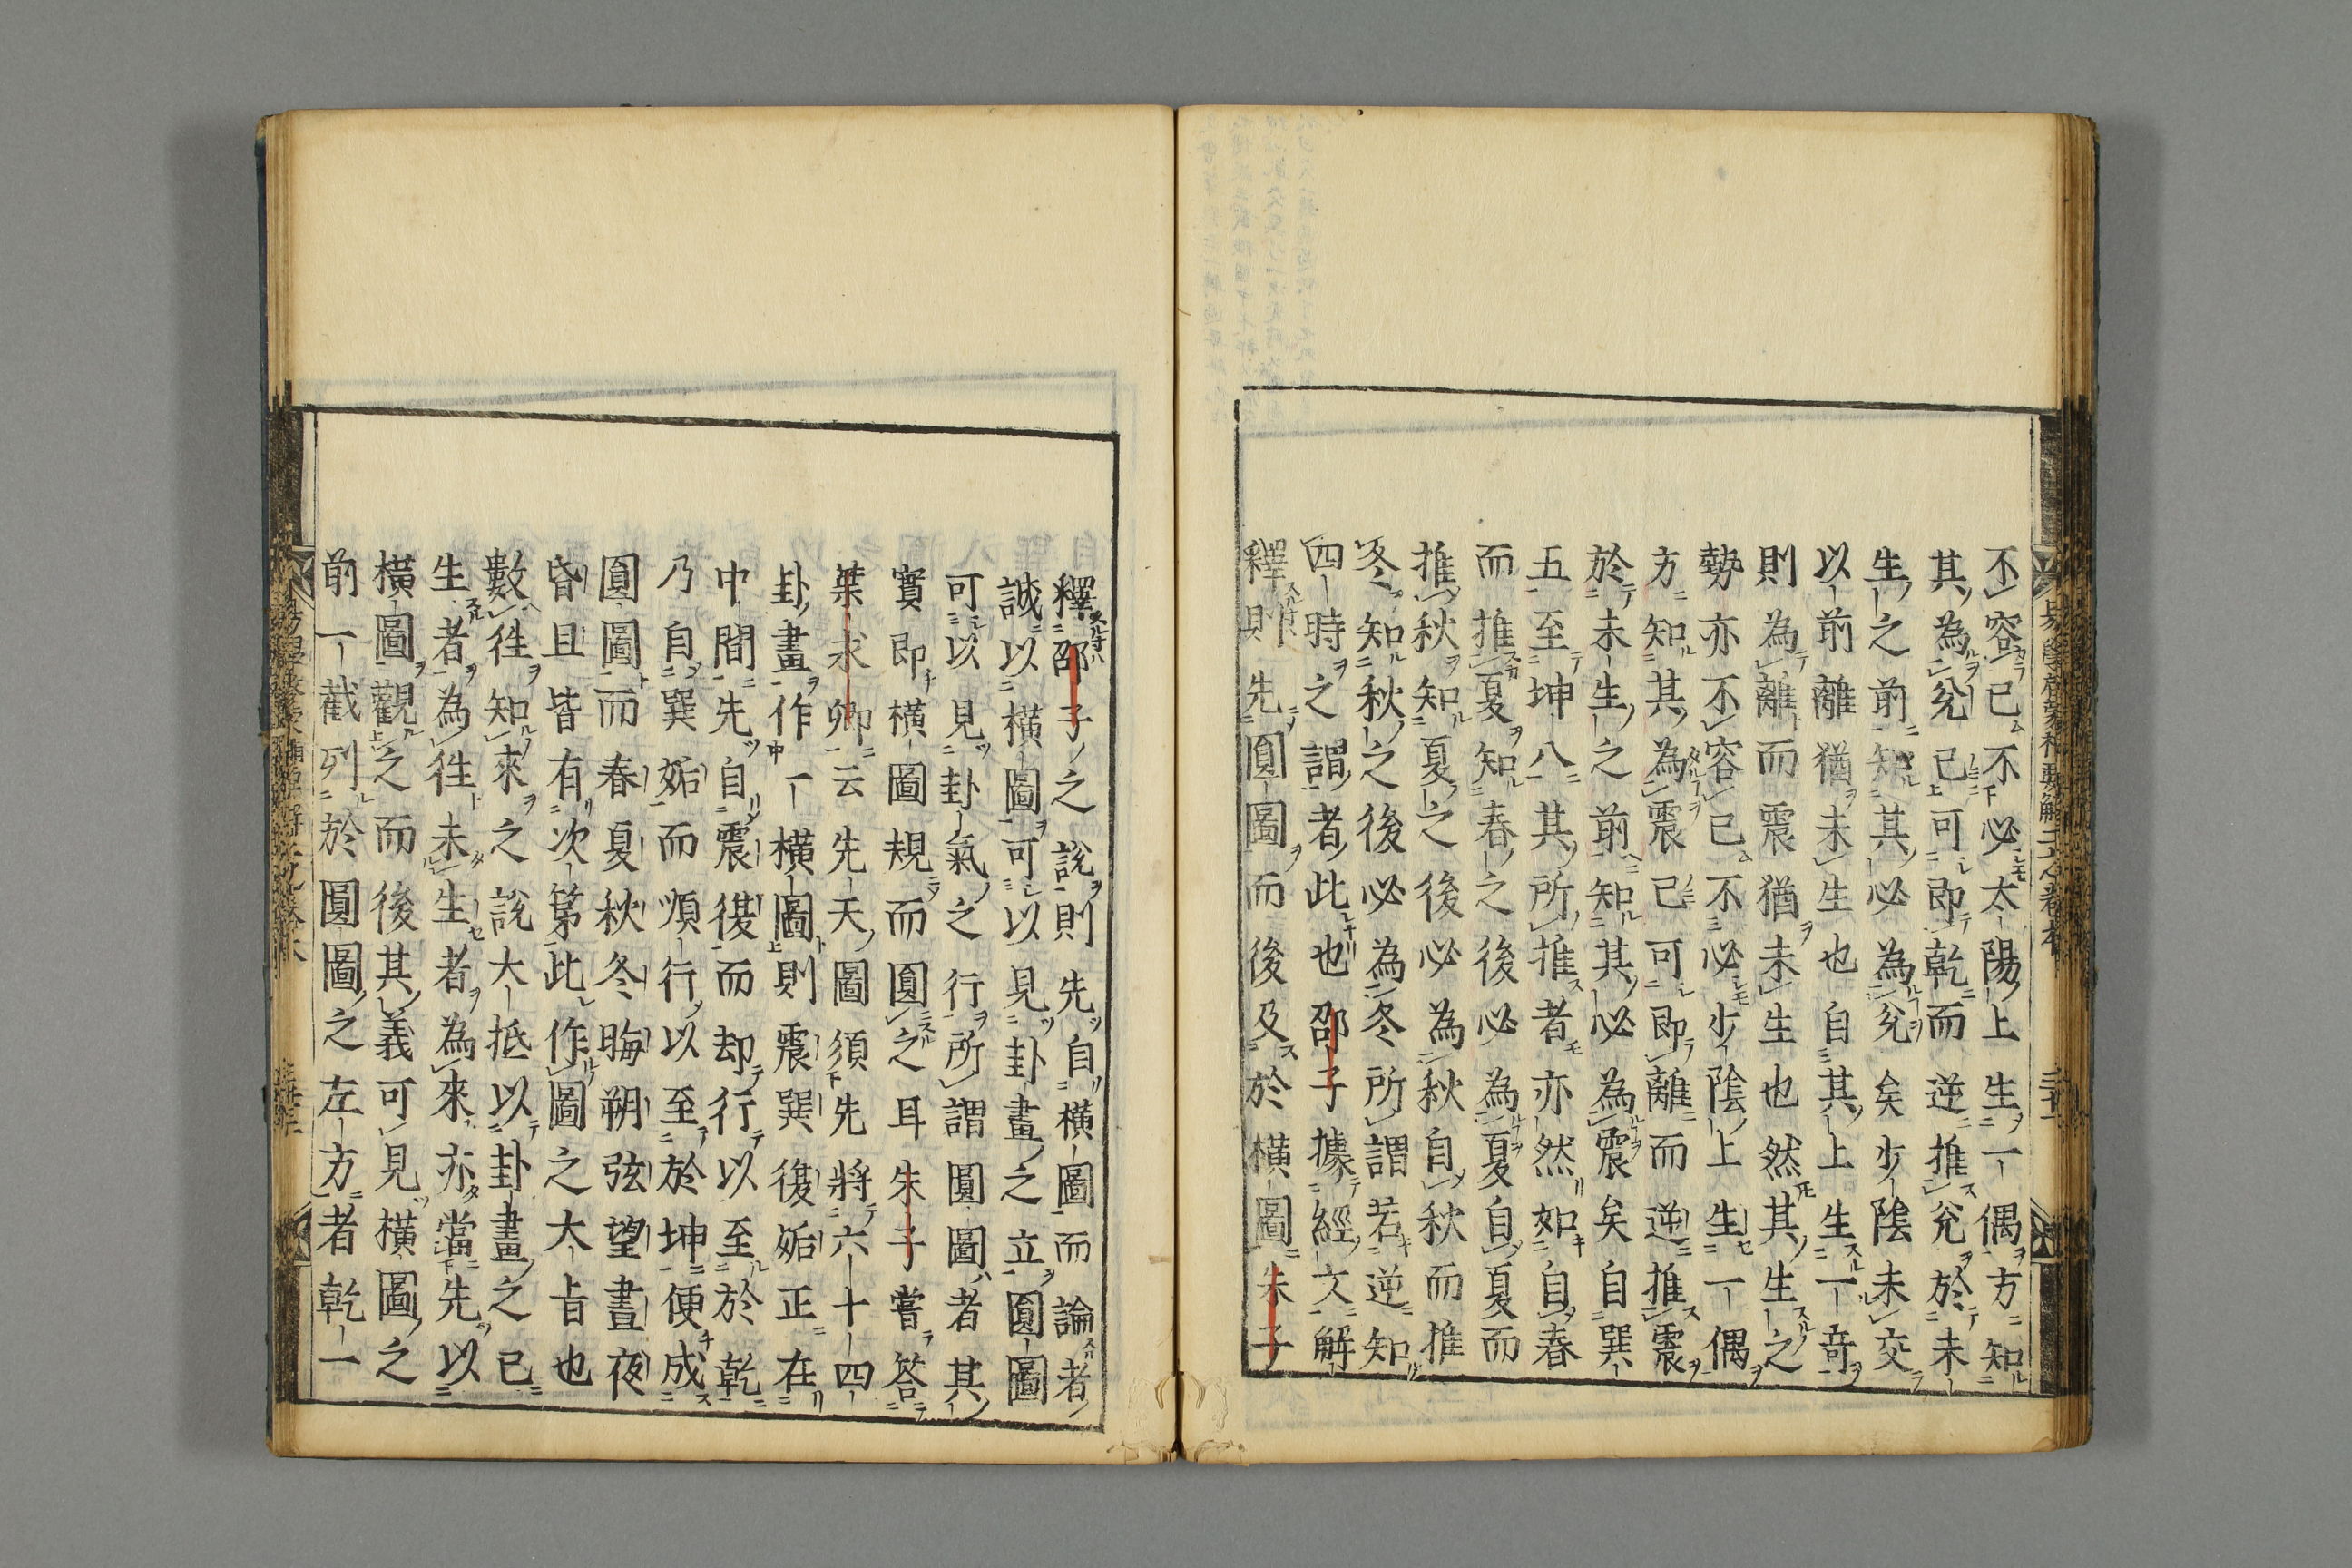 不容已不必太陽上生一偶方知
其為兌已可即乾而逆推兌於未
生之前知其必為兌矣少陰未交
以前離猶未生也自其上生一奇
則為離而震猶未生也然其生之
勢亦不容已不必少陰上生一偶
方知其為震已可即離而逆推震
於未生之前知其必為震矣自巽
五至坤八其所推者亦然如自春
而推夏知春之後必為夏自夏而
推秋知夏之後必為秋自秋而推
冬知秋之後必為冬所謂若逆知
四時之謂者此也邵子據經文解
釋則先圓圖而後及於橫圖朱子
釋邵子之說則先自橫圖而論者
誠以橫圖可以見卦畫之立圓圖
可以見卦氣之行所謂圓圖者其
實即橫圖規而圓之耳朱子嘗答
葉求卿云先天圖須先將六十四
卦畫作一橫圖則震巽復姤正在
中間先自震復而却行以至於乾
乃自巽姤而順行以至於坤便成
圓圖而春夏秋冬晦朔弦望晝夜
昏旦皆有次第此作圖之大旨也
數徃知來之說大抵以卦畫之已
生者為徃未生者為來亦當先以
橫圖觀之而後其義可見橫圖之
前一截列於圓圖之左方者乾一